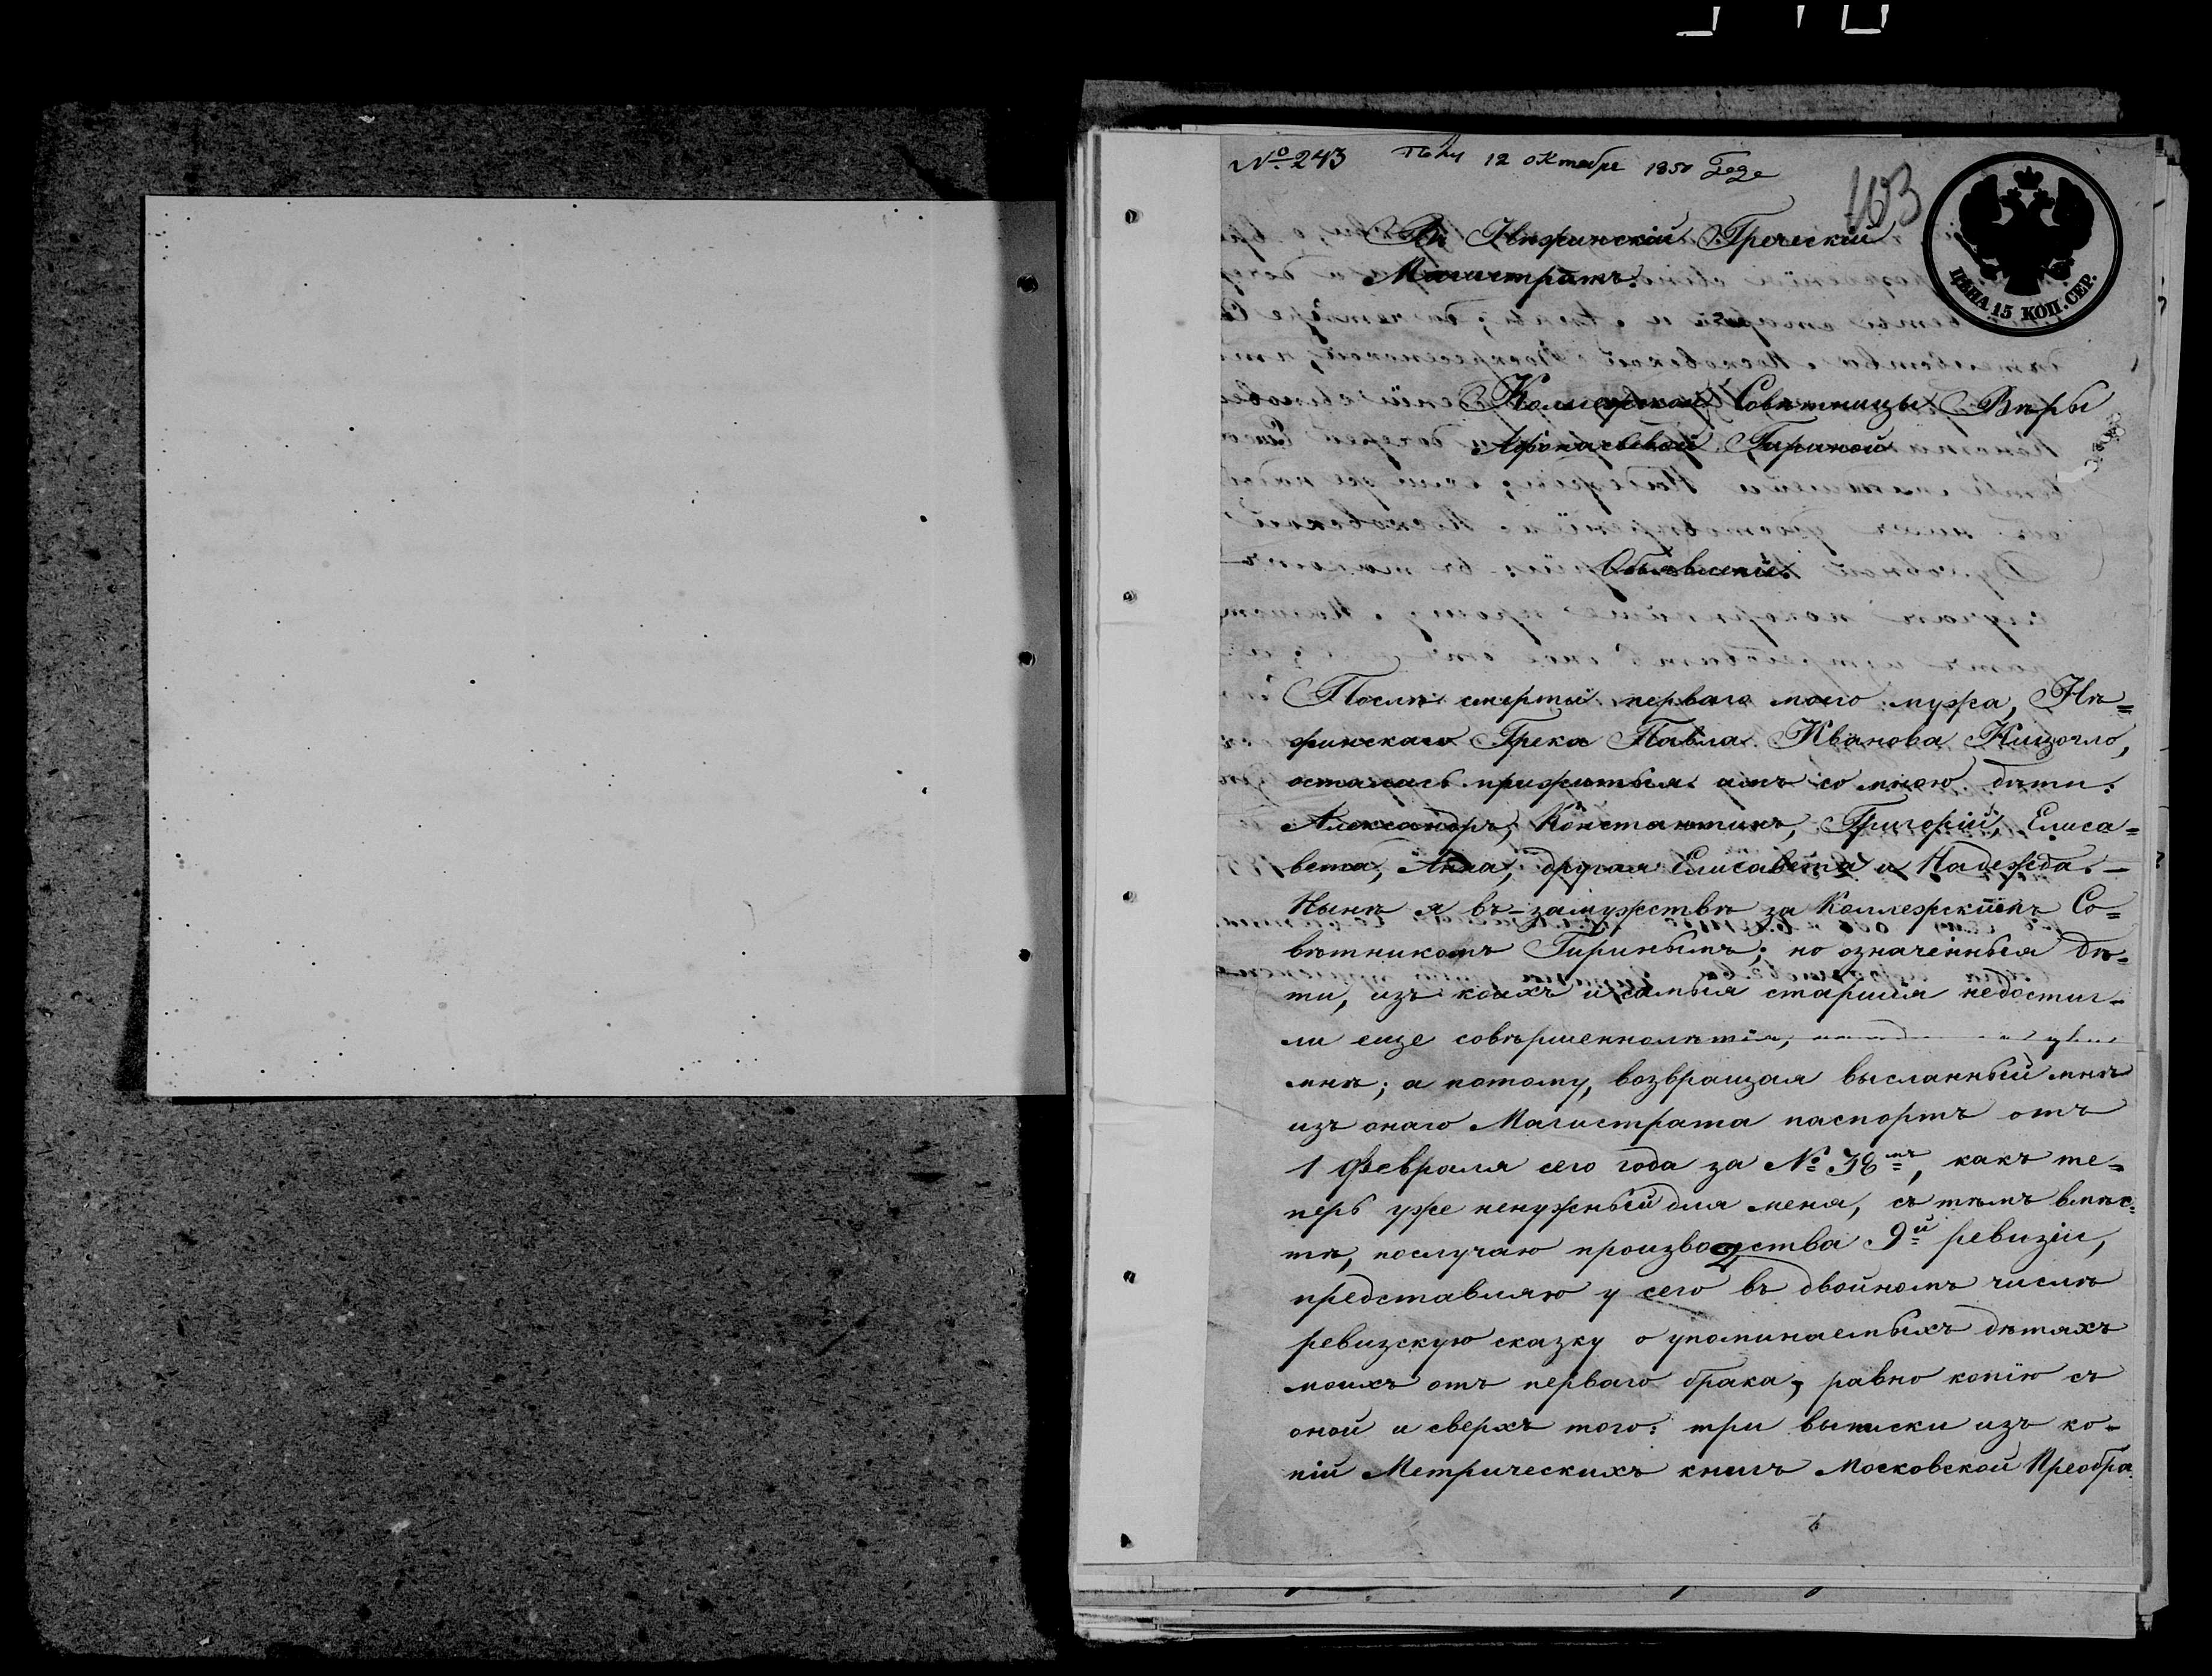 № 243 12 октебре 1850 Года
103
ЦѢНА 15 КОП. СЕР.
Въ Нѣжинскій Греческій
Магистратъ.
Коллежской Совѣтницы Вѣры
Афонасьевой Гириной
Объявленіе.
Послѣ смерти перваго моего мужа, Нѣ=
жинскаго Грека Павла Иванова
остались прижитыя имъ со мною дѣти:
Александръ, Константинъ, Григорій, Елиса=
вета, Анна, другая Елисавета и Надежда. —
Нынѣ я въ замужствѣ за Коллежскимъ Со=
вѣтникомъ Гиринымъ; но означенныя дѣ-
ти, изъ коихъ и самыя старшія недостиг-
ли еще совѣршеннолѣтія,
мнѣ; а потому, возвращая высланный мнѣ
изъ онаго Магистрата паспортъ отъ
1 Февраля сего года за № 38мъ, какъ те=
перь уже ненужный для меня, съ тѣмъ вмѣс=
тѣ, послучаю производства 9й ревизіи,
представляю у сего въ двойномъ числѣ
ревизскую сказку о упоминаемыхъ дѣтяхъ
моихъ отъ перваго брака, равно копію съ
оной и сверхъ того: три выписки изъ ко-
пій Метрическихъ книгъ Московской Преобра